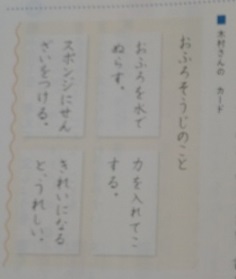 木村さんの カード
おふろそうじのこと
おふろを水で
ぬらす。
力を入れてこ
する。
スポンジにせん
ざいをつける。
きれいになる
と、うれしい。